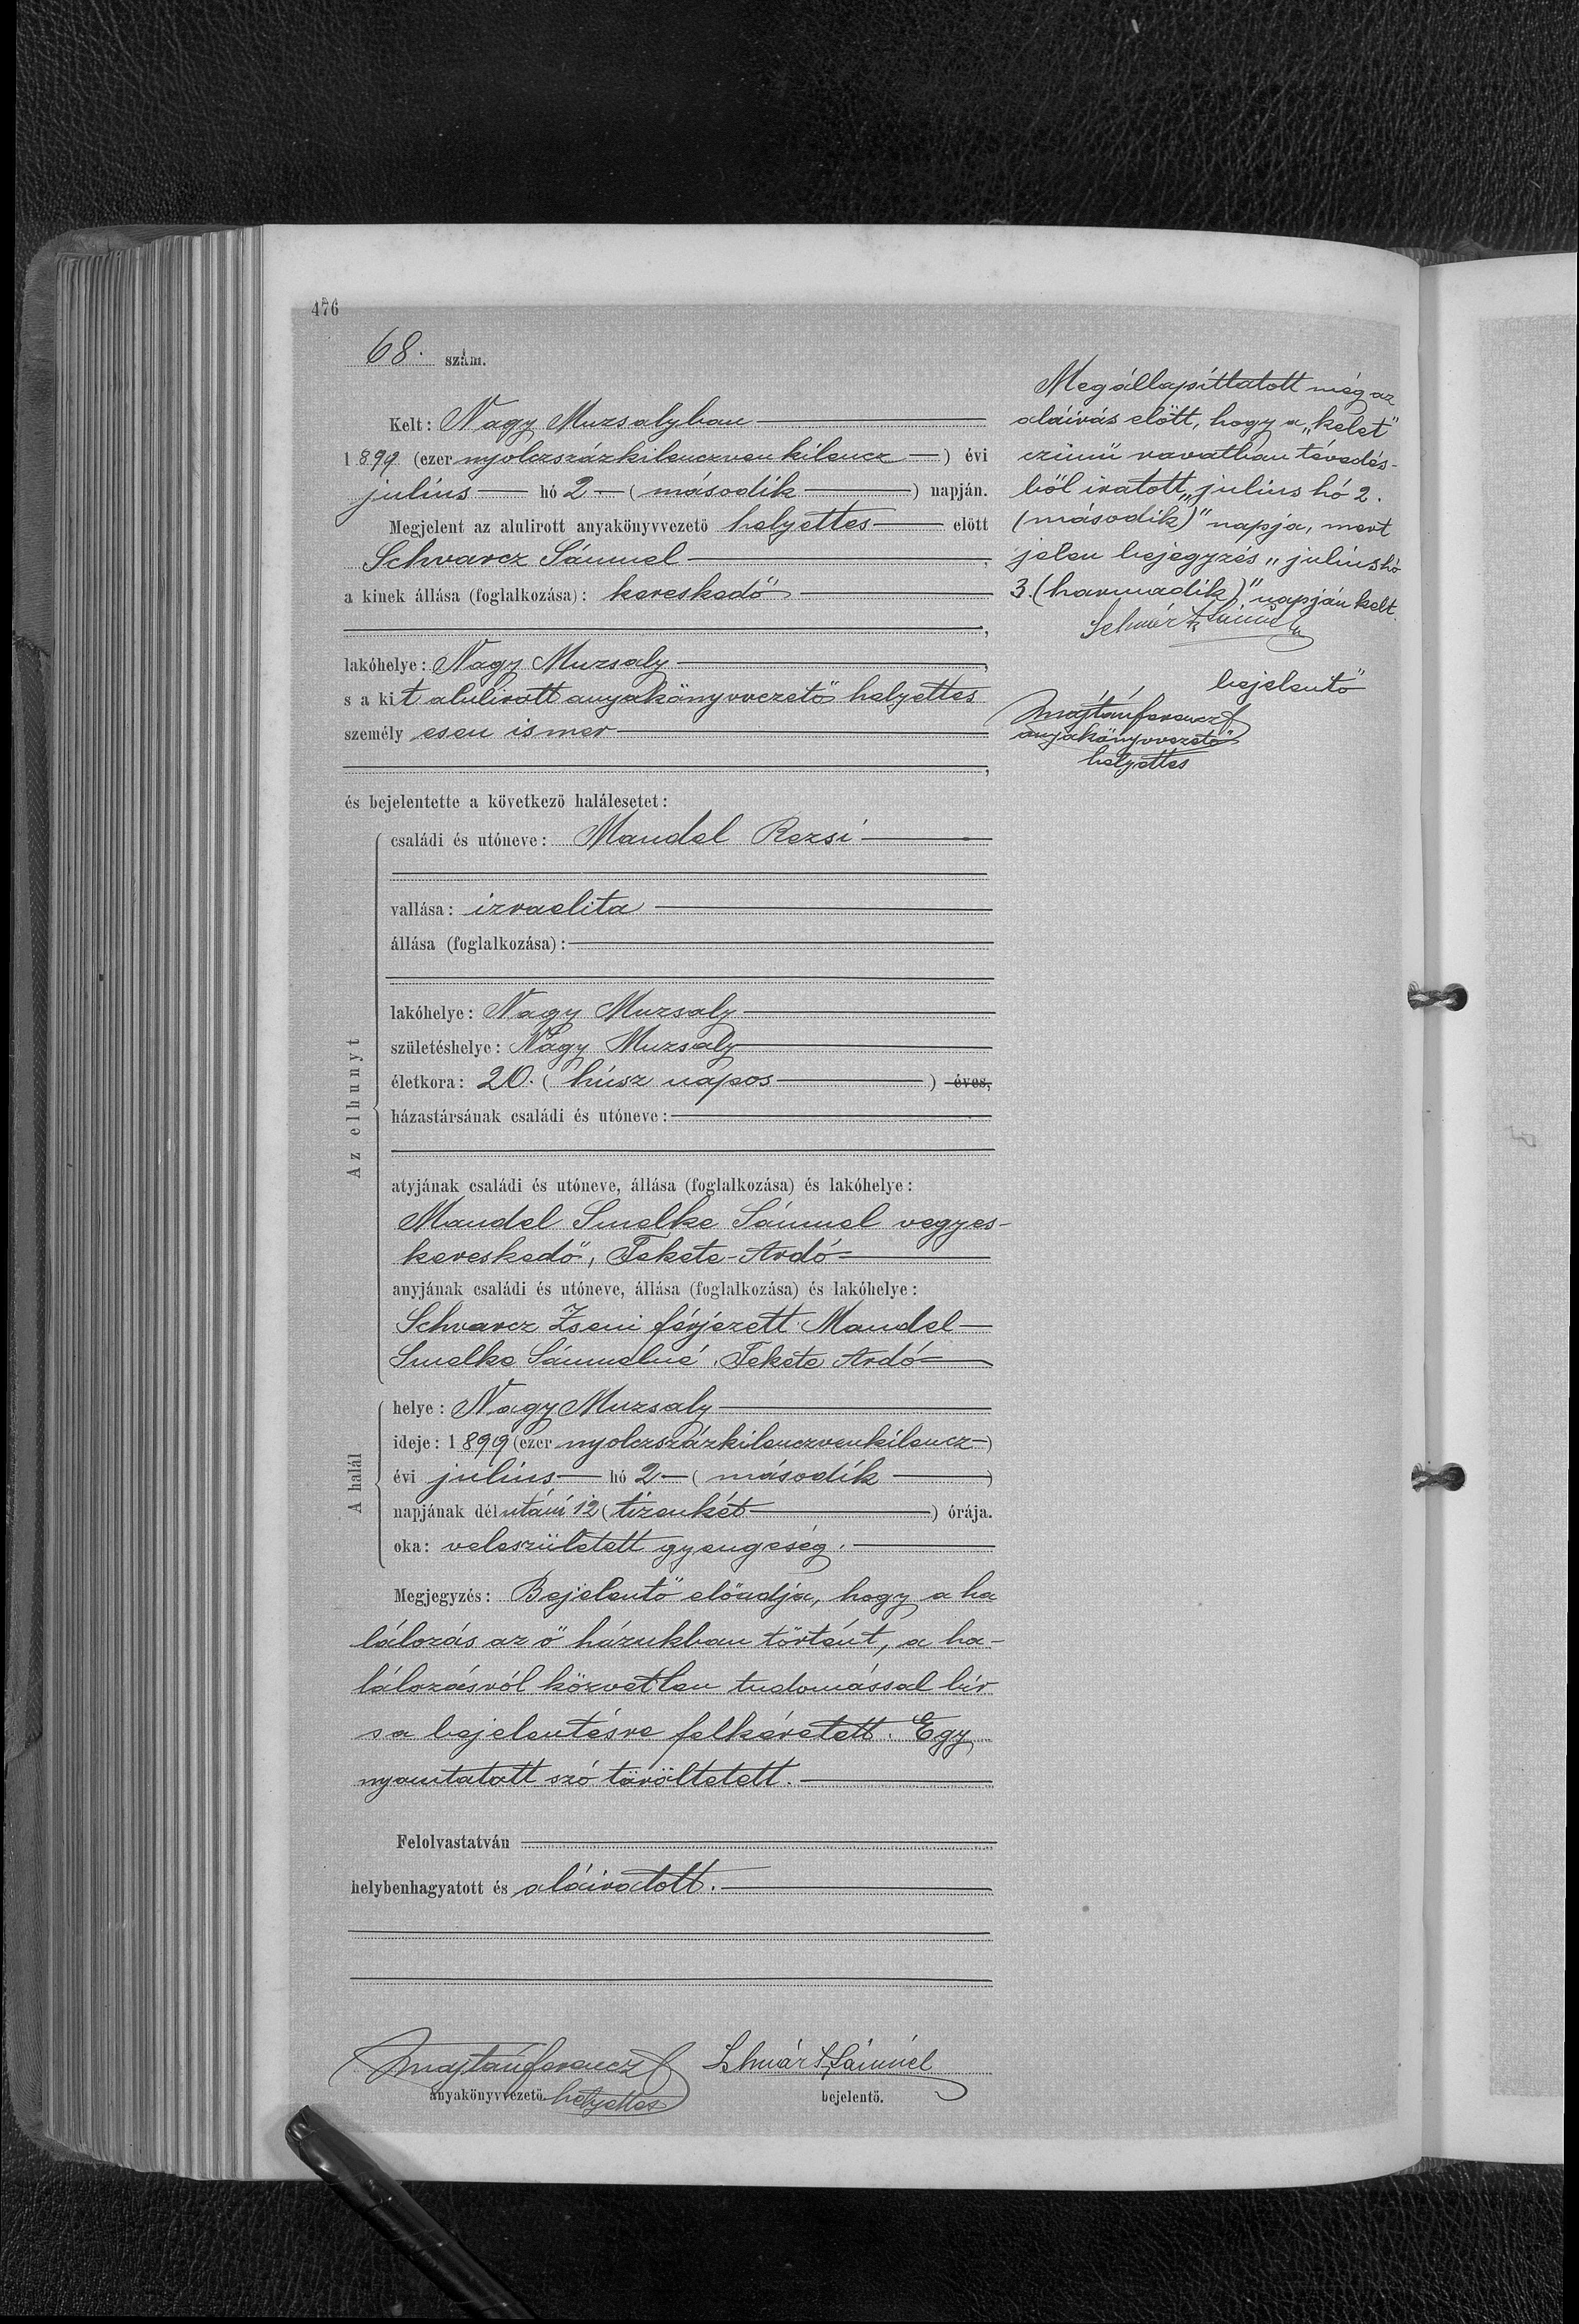 476
68. szám.
Kelt: Nagy Muzsalyban
1899 (ezer nyolczszázkilenczvenkilencz) évi
julius hó 2 (második) napján.
Megjelent az alulirott anyakönyvvezető helyettes előtt
Schvarcz Sámuel,
a kinek állása (foglalkozása): kereskedő
,
lakóhelye: Nagy Muzsaly,
s a kit alulirott anyakönyvvezető helyettes
személyesen ismer
,
és bejelentette a következő halálesetet:
Az elhunyt
családi és utóneve: Mandel Rezsi
vallása: izraelita
állása (foglalkozása):
lakóhelye: Nagy Muzsaly
születéshelye: Nagy Muzsaly
életkora: 20. (húsz napos) éves,
házastársának családi és utóneve:
atyjának családi és utóneve, állása (foglalkozása) és lakóhelye:
Mandel Smelke Sámuel vegyes-
kereskedő, Fekete-Ardó
anyjának családi és utóneve, állása (foglalkozása) és lakóhelye:
Schvarcz Zseni férjezett Mandel
Smelke Sámuelné, Fekete Ardó
A halál
helye: Nagy Muzsaly
ideje: 1899 (ezer nyolczszázkilenczvenkilencz)
évi julius hó 2 (második)
napjának délutáni 12 (tizenkét) órája.
oka: veleszületett gyengeség.
Megjegyzés: Bejelentő előadja, hogy a ha
lálozás az ő házukban történt, a ha-
lálozásról közvetlen tudomással bír
s a bejelentésre felkéretett. Egy
nyomtatott szó töröltetett.
Felolvastatván
helybenhagyatott és aláiratott.
Majtán Ferencz
anyakönyvvezető. helyettes
Schwártz Sámuel
bejelentő.
Megállapíttatott még az
aláirás előtt, hogy a „kelet"
czimü rovatban tévedés-
ből iratott „julius hó 2.
(második)" napja, mert
jelen bejegyzés „julius hó
3. (harmadik)" napján kelt.
Schwártz Sámuel
bejelentő
Majtán Ferencz
anyakönyvvezető
helyettes